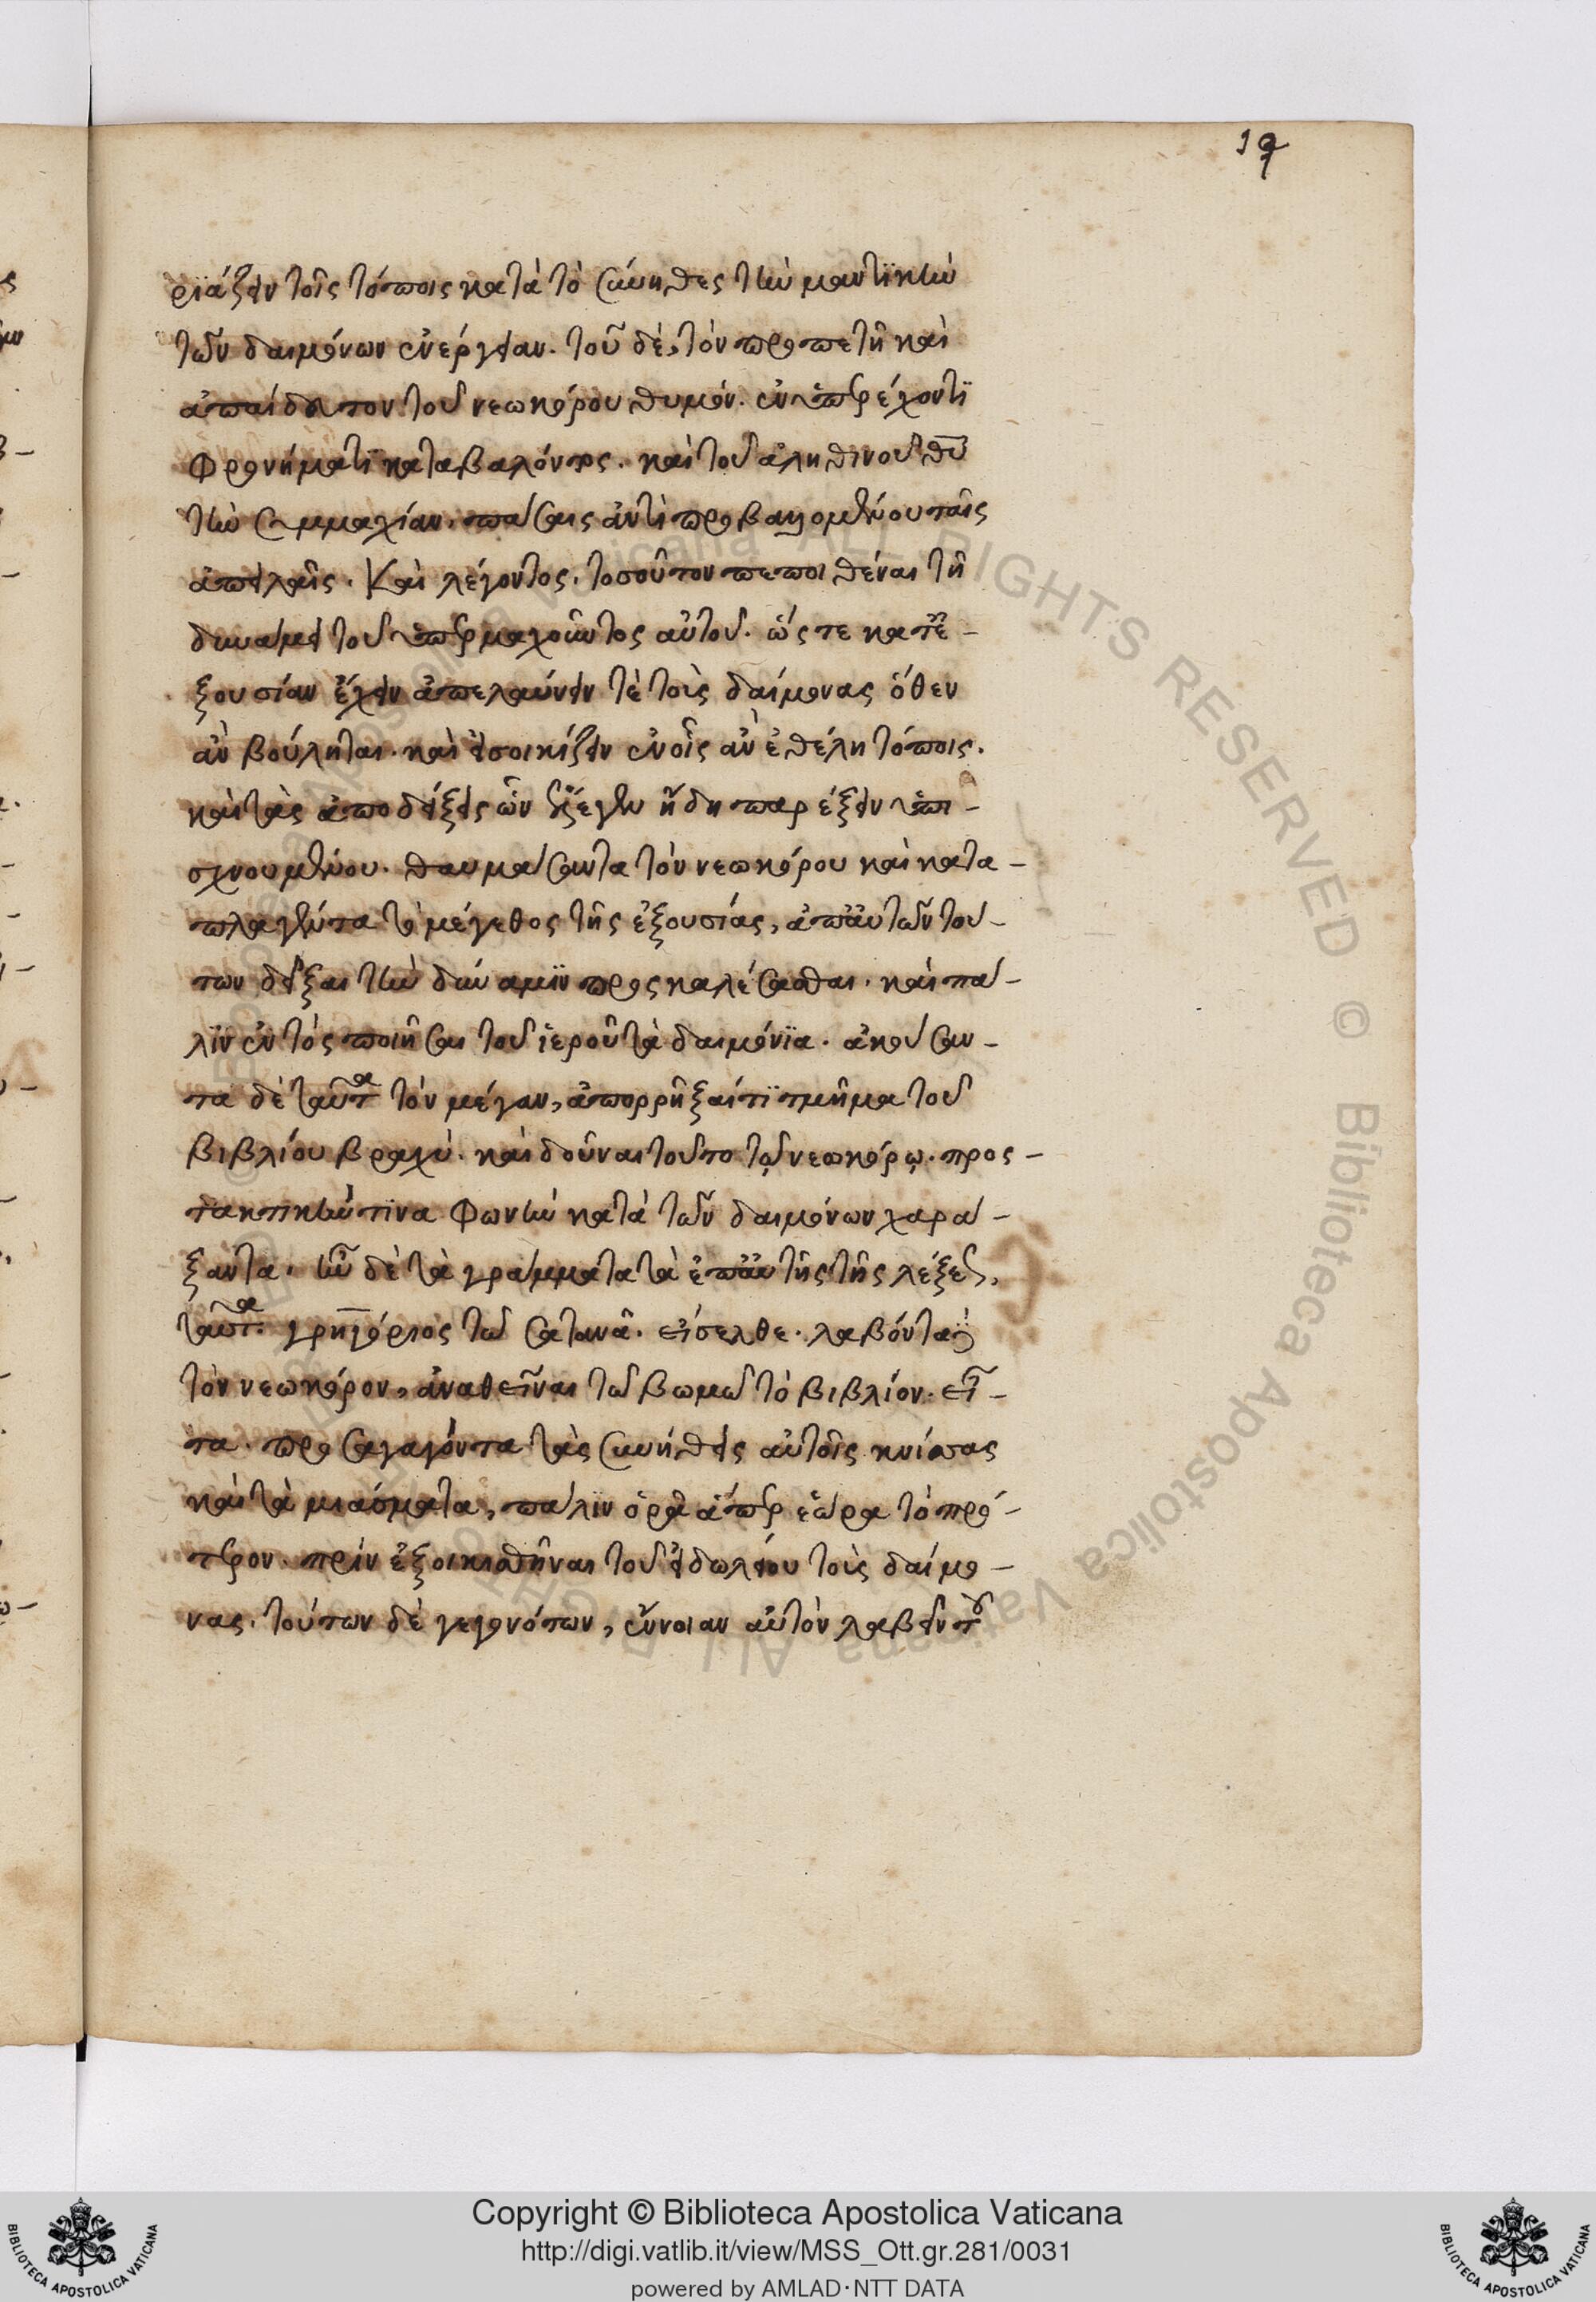 19
ριάζειν τοῖς τόποις κατὰ τὸ σύνηθες τὴν μαντϊκὴν
τῶν δαιμόνων ἐνέργειαν. τοῦ δὲ, τὸν προπετῆ καὶ
ἀπαίδευτον τοῦ νεωκόρου θυμόν. ἐν ὑπερέχοντϊ
φρονήματϊ καταβαλόντος. καὶ τοῦ ἀληθινοῦ θῡ
τὴν συμμαχίαν. πάσαις ἀντὶ προβαλλομένου ταῖς
ἀπειλαῖς. Καὶ λέγοντος. τοσοῦτον πεποιθέναι τῇ
δυνάμει τοῦ ὑπερμαχοῦντος αὐτοῦ. ὥς τε κατ ἐ-
ξουσίαν ἔχειν ἀπελαύνειν τὲ τοὺς δαίμονας ὅθεν
ἂν βούληται. καὶ εἰσοικίζειν ἐν οἷς ἂν ἐθέλη τόποις.
καὶ τὰς ἀποδείξεις ὧν διεξήγεν ἤδη παρέξειν ὑπι-
σχνουμένου. θαυμάσαντα τὸν νεωκόρου καὶ κατα-
πλαγέντα τὸ μέγεθος τῆς ἐξουσίας, ἀπ αὐτῶν τού-
των δεῖξαι τὴν δύναμϊν προςκαλέσασθαι. καὶ πά-
λϊν ἐντὸς ποιῆσαι τοῦ ἱεροῦ τὰ δαιμόνϊα. ἀκούσαν-
τα δὲ ταῦτα τὸν μέγαν, ἀπορρῆξαί τϊ τμῆμα τοῦ
βιβλίου βραχύ. καὶ δοῦναι τοῦτο τῷ νεωκόρῳ. προς-
τακτικήν τϊνα φωνὴν κατὰ τῶν δαιμόνων χαρά-
ξαντα. ἦν δὲ τὰ γράμματα τὰ ἐπ αὐτῆς τῆς λέξεως,
ταῦτα. γρηγόριος τῶ σατανᾶ. εἴσελθε. λαβόντα
τὸν νεωκόρον, ἀναθεῖναι τῶ βωμῶ τὸ βιβλίον. εἶ-
τα. προσαγαγόντα τὰς συνήθεις αὐτοῖς κνίσας
καὶ τὰ μιάσματα, πάλϊν ὁρᾶν ἅπερ ἑώρα τὸ πρό-
τερον. πρὶν ἐξοικισθῆναι τοῦ εἰδωλείου τοὺς δαίμο-
νας. τούτων δὲ γεγονότων, ἔννοιαν αὐτὸν λαβεῖν τοῦ
Copyright © Biblioteca Apostolica Vaticana
http://digi.vatlib.it/view/MSS_Ott.gr.281/0031
powered by AMLAD·NTT DATA